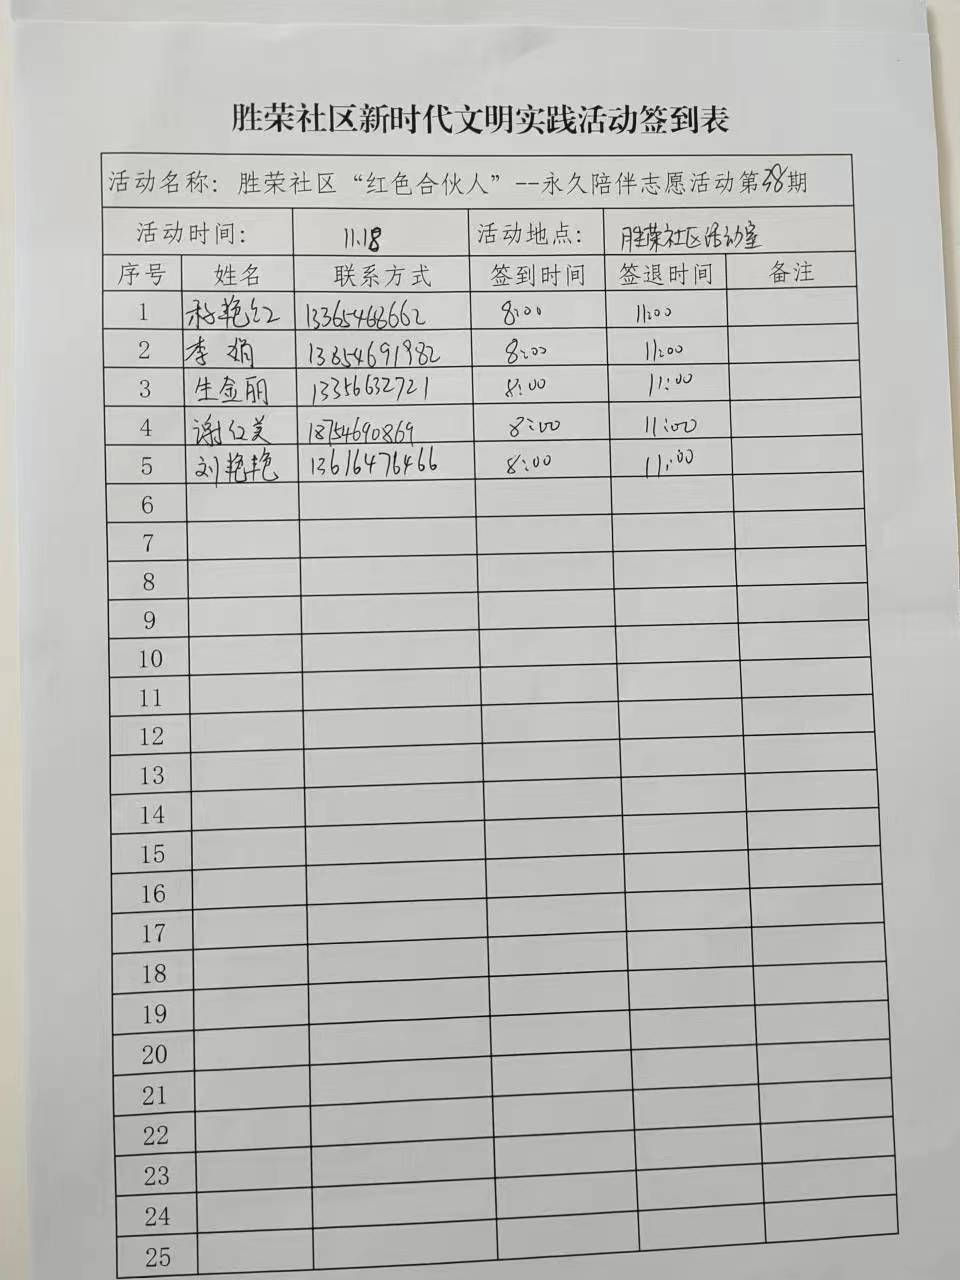 胜荣社区新时代文明实践活动签到表
活动名称：胜荣社区“红色合伙人”--永久陪伴志愿活动第38期
活动时间： 11.18 活动地点： 胜荣社区活动室
序号 姓名 联系方式 签到时间 签退时间 备注
1 艳红 13365468662 8:00 11:00
2 李娟 13854691982 8:00 11:00
3 生金丽 13356632721 8:00 11:00
4 谢红美 18754690869 8:00 11:00
5 刘艳艳 13616476466 8:00 11:00
6
7
8
9
10
11
12
13
14
15
16
17
18
19
20
21
22
23
24
25